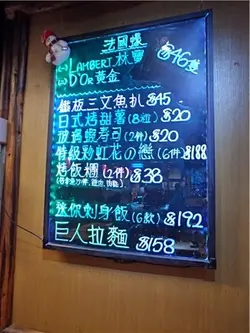 法國蠔
(1) LAMBERT林寶
(2) D'OR黃金
$46隻
鐵板三文魚扒 $45
日式烤甜薯(8粒) $20
玻璃蝦壽司(2件) $20
特級彩虹花之戀(6件) $188
烤飯糰(2件) $38
迷你刺身飯(6款) $192
巨人拉麵 $158